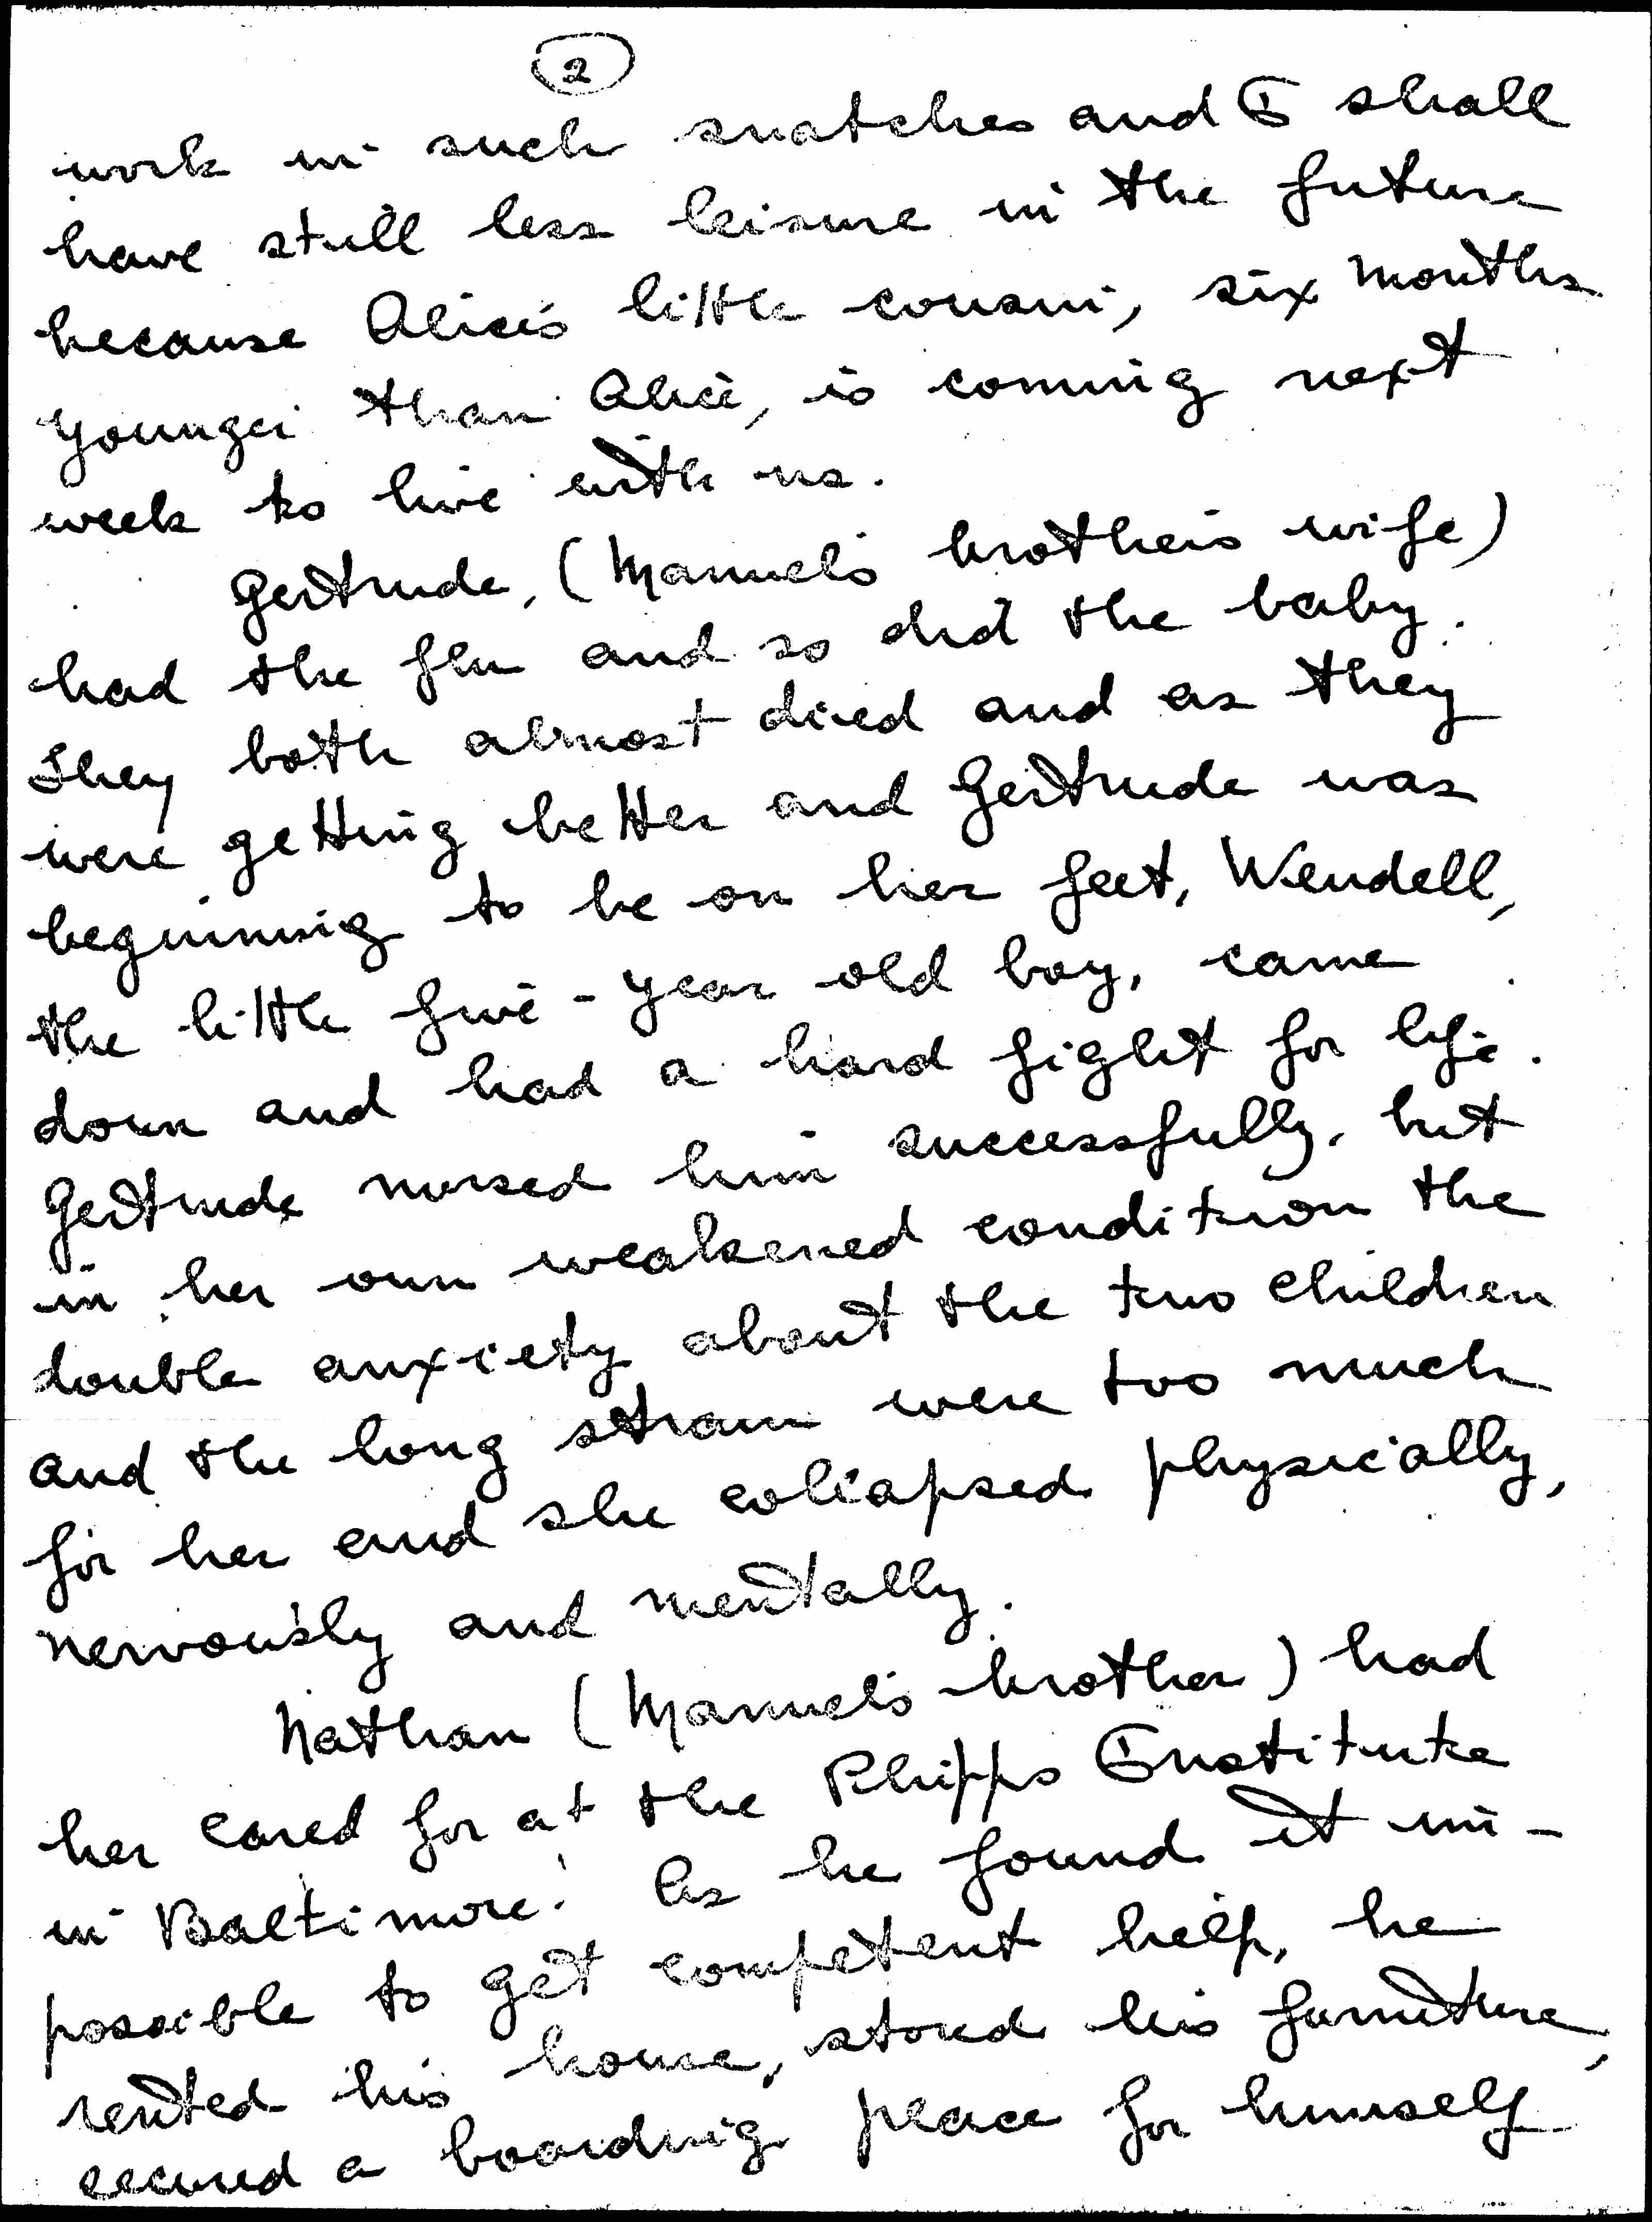 2
work in such snatches and I shall
have still less leisure in the future
because Alice's little cousin, six months
younger than Alice, is coming next
week to live with us.
Gertrude, (Manuel's brother's wife)
had the flu and so did the baby.
They both almost died and as they
were getting better and Gertrude was
beginning to be on her feet, Wendell,
the little five-year old boy, came
down and had a hard fight for life.
Gertrude nursed him successfully, but
in her own weakened condition the
double anxiety about the two children
and the long strain were too much
for her and she collapsed physically,
nervously and mentally.
Nathan (Manuel's brother) had
her cared for at the Phipps Institute
in Baltimore. As he found it im-
possible to get competent help, he
rented his house, stored his furniture,
secured a boarding place for himself